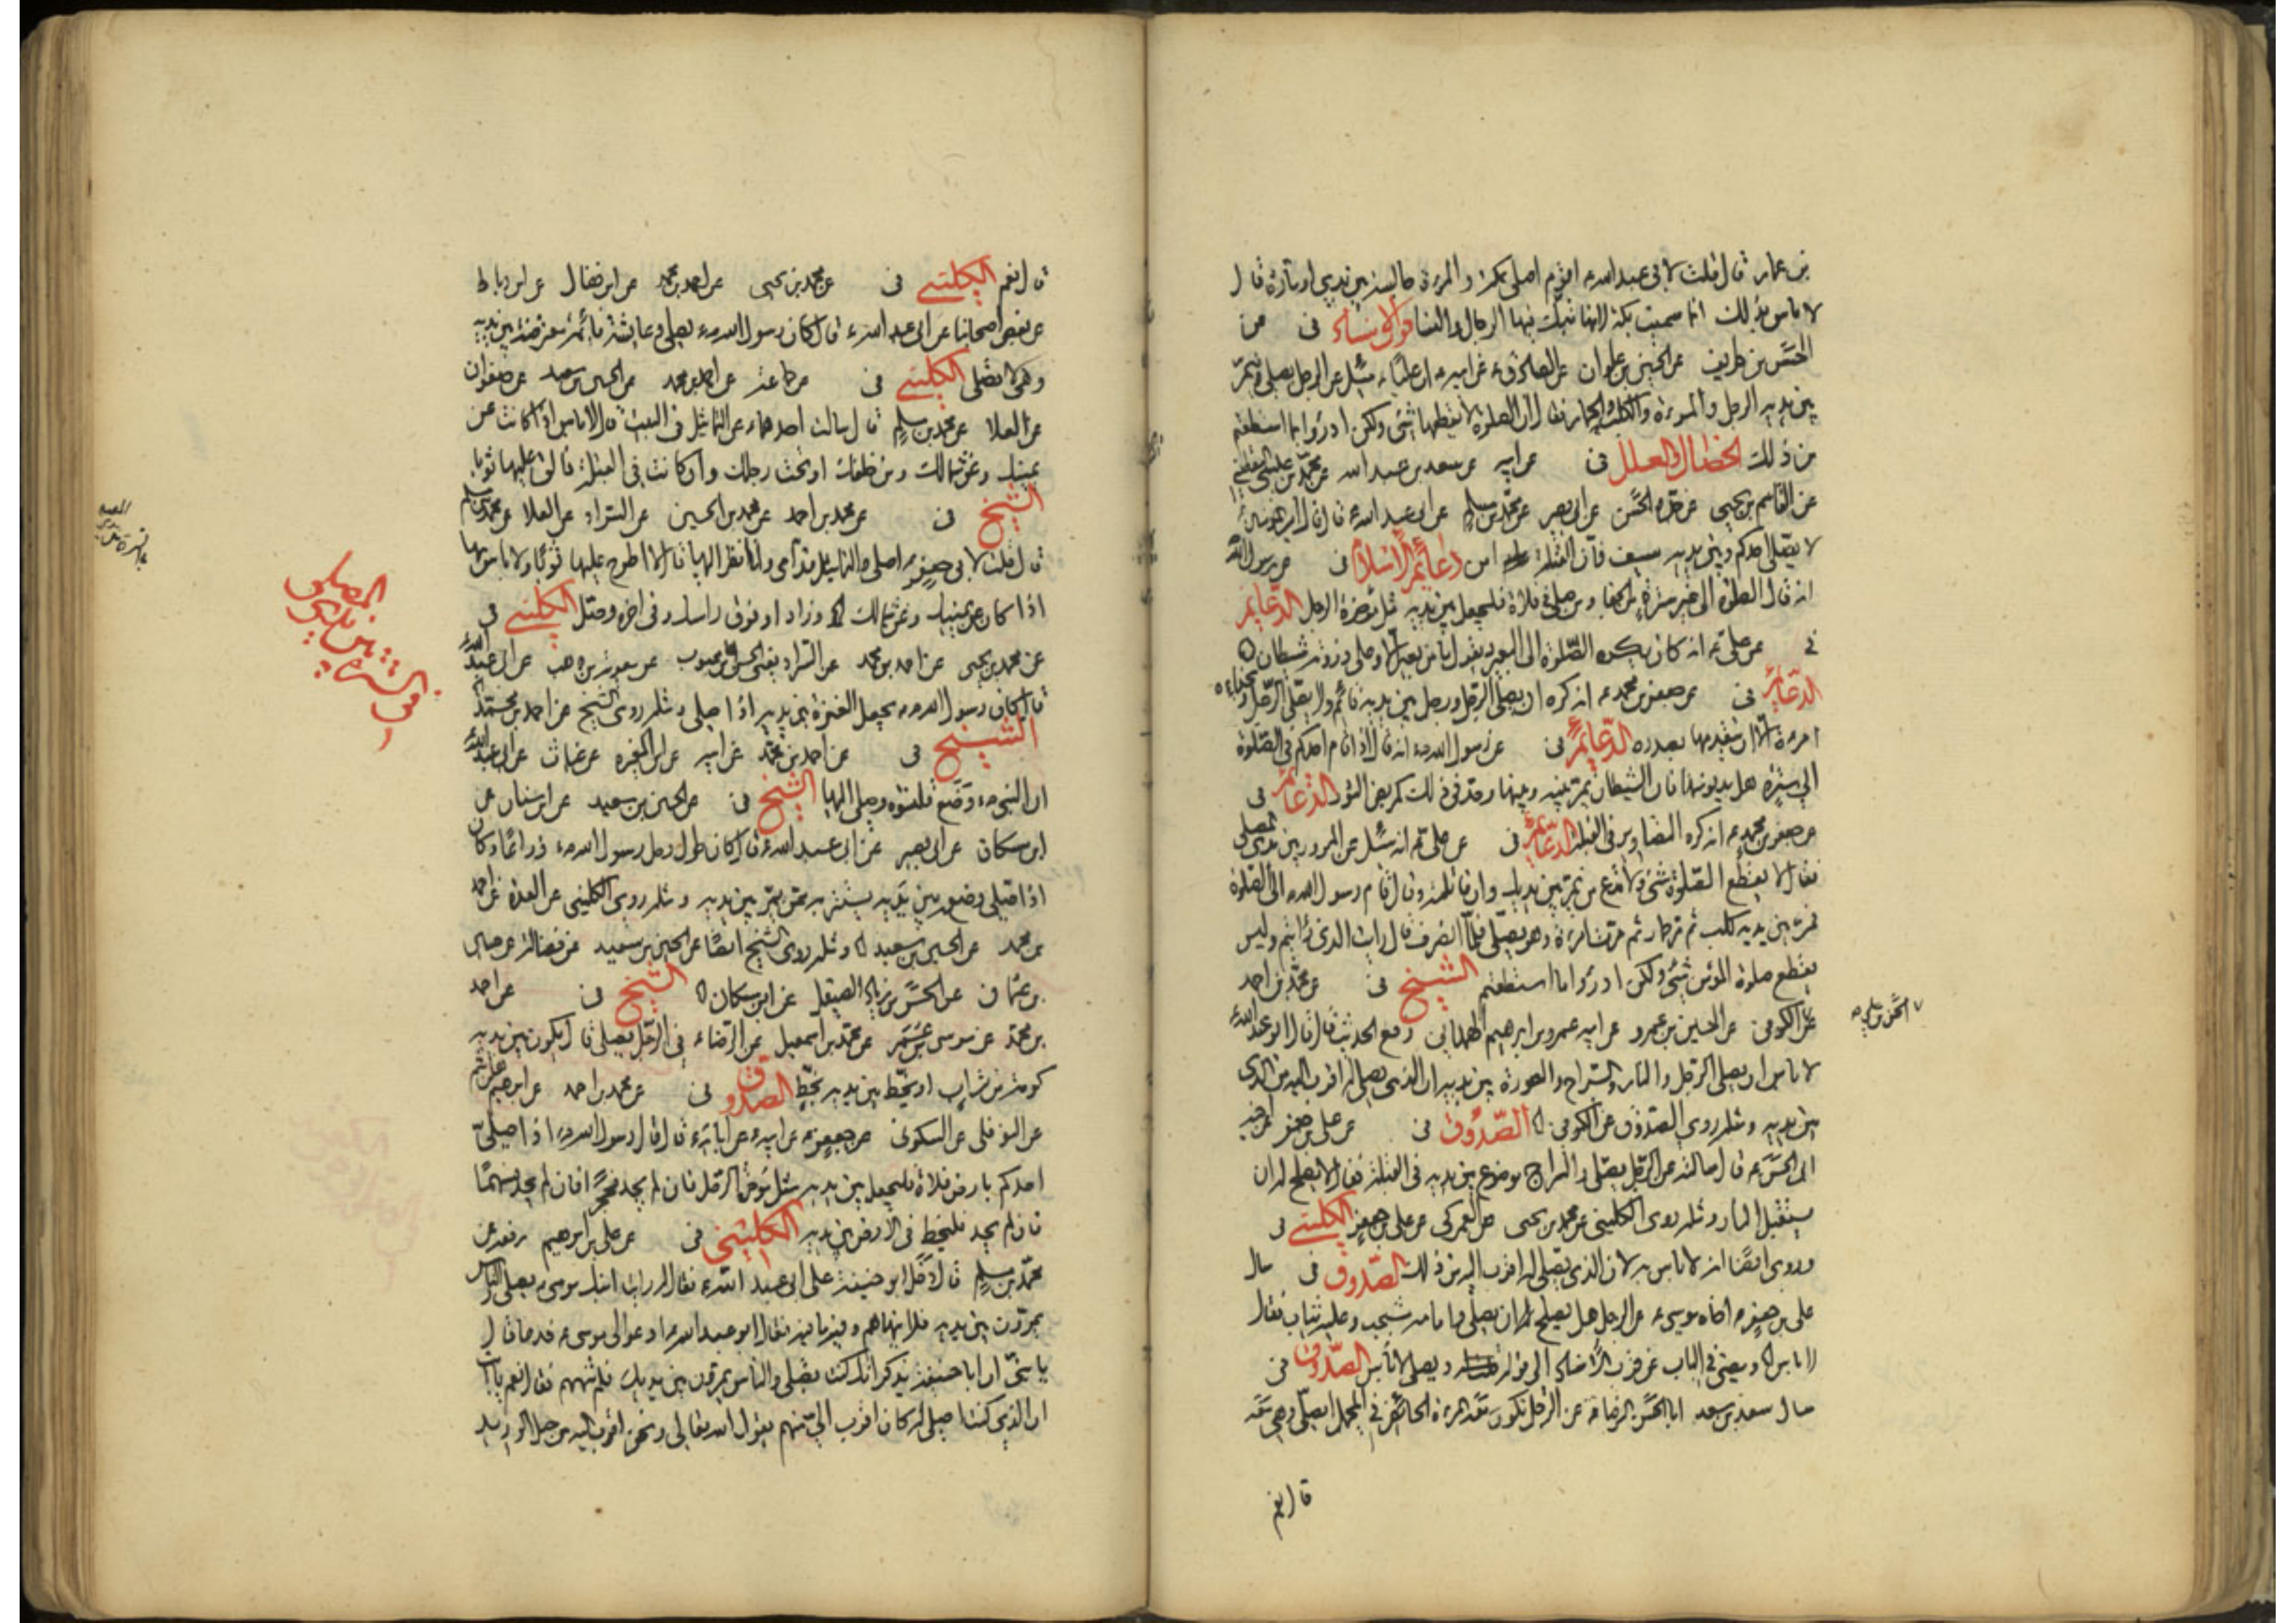 بن عمار قال قلت لابى عبد الله ع اقوم اصلى بمكة والمرءة جالسة بين يدي او مارة قال
لا باس بذلك انما سميت بكة لانها تبك فيها الرجال والنسا قرب الاسناد فى عن
الحسن بن طريف عن الحسين بن علوان عن الصادق ع عن ابيه ع ان عليا ع سئل عن الرجل يصلى فيمر
بين يديه الرجل والمرءة والكلب والحمار فقال ان الصلوة لا يقطعها شئ ولكن ادرؤا ما استطعتم
من ذلك الخصال والعلل فى عن ابيه عن سعد بن عبد الله عن محمد بن عيسى اليقطينى
عن القاسم بن يحيى عن جده الحسن عن ابى بصير عن محمد بن مسلم عن ابى عبد الله ع قال قال امير المؤمنين ع
لا يصلى احدكم وبين يديه سيف فان القبلة امن دعائم الاسلام فى عن رسول الله
انه قال الصلوة الى غير سترة من الجفا ومن صلى فى فلاة فليجعل بين يديه مثل مؤخرة الرحل الدعايم
فى عن على ع انه كان يكره الصلوة الى البعير ويقول ما من بعير الا وعلى ذروته شيطان
الدعائم فى عن جعفر بن محمد ع انه كره ان يصلى الرجل ورجل بين يديه نائم ولا يصلى الرجل وبحذاءه
امرءة الا ان يتقدمها بصدره الدعايم فى عن رسول الله ص انه قال اذا قام احدكم فى الصلوة
الى سترة فليدن منها فان الشيطان يمر بينه وبينها وحد فى ذلك كمربض الثور الدعائم فى
عن جعفر بن محمد ع انه كره التصاوير فى القبلة الدعائم فى عن على ع انه سئل عن المرور بين يدى المصلى
فقال لا يقطع الصلوة شئ ولا تدع من يمر بين يديك وان قاتلته وقال قام رسول الله ص الى الصلوة
فمر بين يديه كلب ثم مر حمار ثم مرت امرءة وهو يصلى فلما انصرف قال رايت الذى رايتم وليس
يقطع صلوة المؤمن شئ ولكن ادرؤا ما استطعتم الشيخ فى عن محمد بن احمد
عن الكوفى عن الحسين بن عمرو عن ابيه عمرو بن ابراهيم الهمدانى رفع الحديث قال قال ابو عبد الله ع
لا باس ان يصلى الرجل والنار والسراج والصورة بين يديه ان الذى يصلى له اقرب اليه من الذى
بين يديه ومثله روى الصدوق عن الكوفى الصدوق فى عن على بن جعفر عن اخيه
ابى الحسن ع قال سالته عن الرجل يصلى والسراج موضوع بين يديه فى القبلة فقال لا يصلح له ان
يستقبل النار ومثله روى الكلينى عن محمد بن يحيى عن العمركى عن على بن جعفر الكلينى فى
وروى ايضا انه لا باس به لان الذى يصلى له اقرب اليه من ذلك الصدوق فى سال
على بن جعفر اخاه موسى ع عن الرجل هل يصلح له ان يصلى وامامه مشجب وعليه ثياب فقال
لا باس
سال سعد بن سعد ابا الحسن الرضا ع عن الرجل تكون معه المرءة الحائض فى المحمل ايصلى وهى معه
الحسن بن على
قال نعم
قال نعم الكلينى فى عن محمد بن يحيى عن احمد بن محمد عن ابن فضال عن ابن رباط
عن بعض اصحابنا عن ابى عبد الله ع قال كان رسول الله ص يصلى وعايشة نائمة معترضة بين يديه
وهى لا تصلى الكلينى فى عن جماعة عن احمد بن محمد عن الحسين بن سعيد عن صفوان
عن العلا عن محمد بن مسلم قال سالت احدهما ع عن التماثيل فى البيت قال لا باس اذا كانت عن
يمينك وعن شمالك ومن خلفك او تحت رجلك وان كانت فى القبلة فالق عليها ثوبا
الشيخ فى عن محمد بن احمد عن محمد بن الحسين عن السراد عن العلا عن محمد بن مسلم
قال قلت لابى جعفر ع اصلى والتماثيل قدامى وانا انظر اليها قال لا اطرح عليها ثوبا ولا باس بها
اذا كان عن يمينك وعن شمالك وزاد او فوق راسك وفى اخره وصل الكلينى فى
عن محمد بن يحيى عن احمد بن محمد عن السراد يعنى الحسن بن محبوب عن معوية بن وهب عن ابى عبد الله ع
قال كان رسول الله ص يجعل العنزة بين يديه اذا صلى ومثله روى الشيخ عن احمد بن محمد
الشيخ فى عن احمد بن محمد عن ابيه عن ابن المغيرة عن غياث عن ابى عبد الله ع
ان النبى ص وضع قلنسوة وصلى اليها الشيخ فى عن الحسين بن سعيد عن ابن سنان عن
ابن مسكان عن ابى بصير عن ابى عبد الله ع قال كان طول رحل رسول الله ص ذراعا وكان
اذا صلى وضعه بين يديه يستتر به ممن يمر بين يديه ومثله روى الكلينى عن العدة عن احمد
بن محمد عن الحسين بن سعيد ومثله روى الشيخ ايضا عن الحسين بن سعيد عن فضالة عن حسين
بن عثمان عن الحسن بن زياد الصيقل عن ابن مسكان الشيخ فى عن احمد
بن محمد عن موسى بن عمر عن محمد بن اسمعيل عن الرضا ع فى الرجل يصلى قال يكون بين يديه
كومة من تراب او يخط بين يديه بخط الصدوق فى عن محمد بن احمد عن ابرهيم بن هاشم
عن النوفلى عن السكونى عن جعفر ع عن ابيه ع عن ابائه ع قال قال رسول الله ص اذا صلى
احدكم بارض فلاة فليجعل بين يديه مثل مؤخرة الرحل فان لم يجد فحجرا فان لم يجد فسهما
فان لم يجد فليخط فى الارض بين يديه الكلينى فى عن على بن ابرهيم رفعه عن
محمد بن مسلم قال دخل ابو حنيفة على ابى عبد الله ع فقال له رايت ابنك موسى ع يصلى والناس
يمرون بين يديه فلا ينهاهم وفيه ما فيه فقال ابو عبد الله ع ادعوا لى موسى ع فدعا قال
يا بنى ان ابا حنيفة يذكر انك كنت تصلى والناس يمرون بين يديك فلم تنههم فقال نعم يا ابة
ان الذى كنت اصلى له كان اقرب الى منهم يقول الله تعالى ونحن اقرب اليه من حبل الوريد